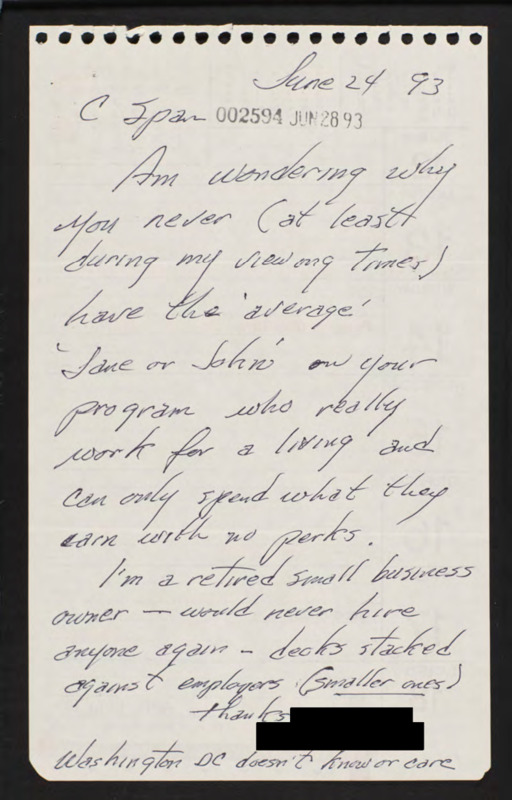 June 24 93
C Span 002594 JUN 28 93
Am wondering why
you never (at least
during my viewing times)
have the 'average'
'Jane or John' on your
program who really
work for a living and
can only spend what they
earn with no perks.
I'm a retired small business
owner — would never hire
anyone again - decks stacked
against employers (smaller ones)
thanks
Washington DC doesn't know or care